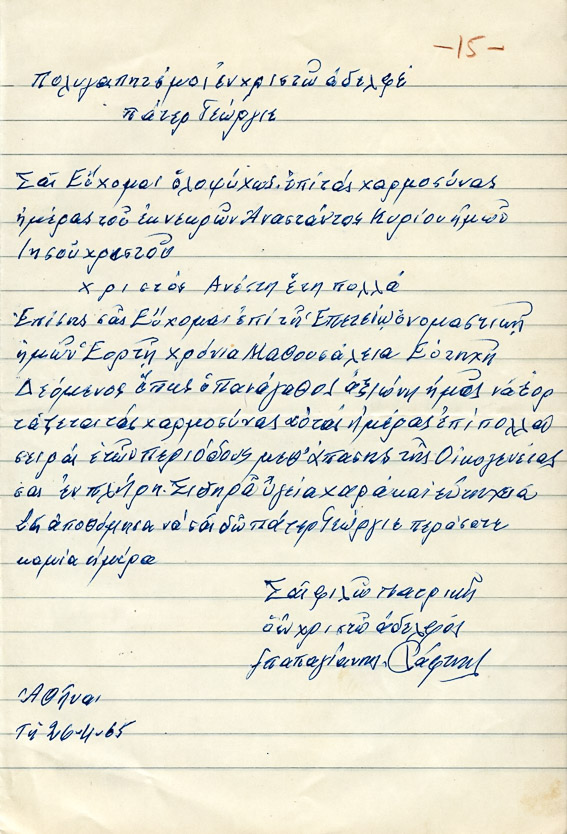 -15-
Πολυγαπητέ μοι ἐν χριστῶ ἀδελφέ
πάτερ Γεώργιε
Σᾶς Εὔχομαι ὁλοψύχως. ἐπί τάς χαρμοσύνας
ἡμέρας τοῦ ἐκ νεκρῶν Αναστάντος Κυρίου ἡμῶν
Ιησοῦ χριστοῦ
χριστός Ανέστη ἔτη πολλά
Επίσης σᾶς Εὔχομαι ἐπί τῆ Επετείω ὀνομαστικῆ
ἡμῶν Εορτῆ χρόνια Μαθουσάλεια Εὐτηχῆ
Δεόμενος ὅπως ὁ Πανάγαθος ἀξιώνη ἡμᾶς νά ἑορ
τάζεται τάς χαρμοσύνας αὐτάς ἡμέρας ἐπί πολλάς
σειράς ἐτῶν περιόδους μεθ' ἁπάσης τῆς Οἰκογενείας
σας ἐν πλήρη. Σιδηρᾶ ὑγεία χαρά και εὐτυχία
ἀποθύμησα νά σᾶς ἰδῶ πάτερ Γεώργιε περάστε
καμία ἡμέρα
Σᾶς φιλῶ πατρικῆ
ὁ ἐν χριστῶ ἀδελφός
παπαγιάννης Ράφτης
Αθῆναι
Τῆ 26-4-65